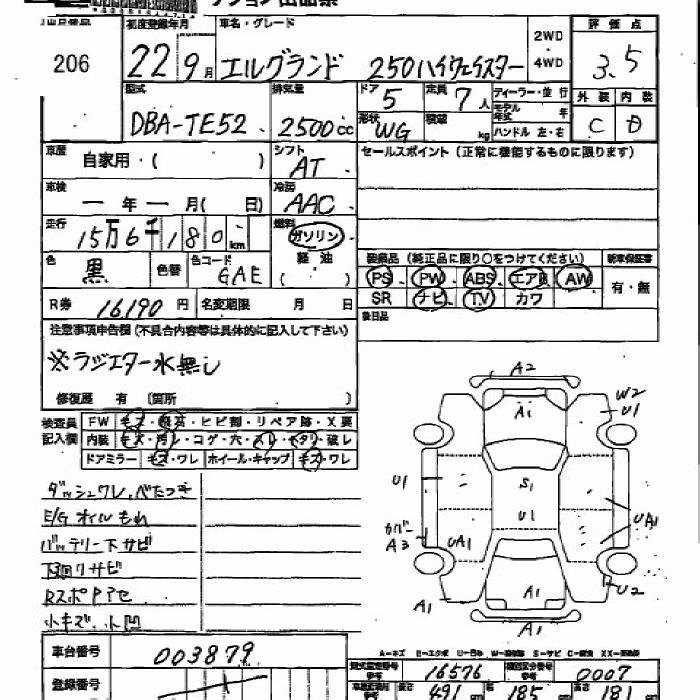 出品番号 初度登録年月 車名・グレード 2WD・4WD 評価点
206 22 9月 エルグランド 250ハイウェイスター 3.5
型式 排気量 ドア 5 定員 7人 ディーラー・並行 外装 内装
DBA-TE52 2500cc 形状 WG 積載 kg モデル年式 年 ハンドル 左・右 C D
車歴 自家用・( ) シフト AT セールスポイント (正常に機能するものに限ります)
車検 ー年ー月( 日) 冷房 AAC
走行 15万6千180km 燃料 ガソリン 軽油 ( )
装備品 (純正品に限り○をつけてください) 新車保証書
色 黒 色替 色コード GAE PS PW ABS エアB AW 有・無
SR ナビ TV カワ
R券 16190円 名変期限 月 日 後日品
注意事項申告欄 (不具合内容等は具体的に記入して下さい)
※ラジエター水無し
修復歴 有 (箇所 )
検査員記入欄 FW キズ・飛石・ヒビ割・リペア跡・X要
内装 キズ・汚レ・コゲ・穴・スレ・ヘタリ・破レ
ドアミラー キズ・ワレ ホイール・キャップ キズ・ワレ
ダッシュワレ、べたつき
E/Gオイルもれ
バッテリー下サビ
下廻りサビ
RスポアPアセ
小キズ、小凹
A2
A1
W2
U1
U1
S1
U1
カバー
A3
UA1
UA1
A1
A1
U2
A1
車台番号 003879
登録番号
型式指定番号 16576 類別区分番号 0007
長さ 491cm 幅 185cm 高さ 181cm